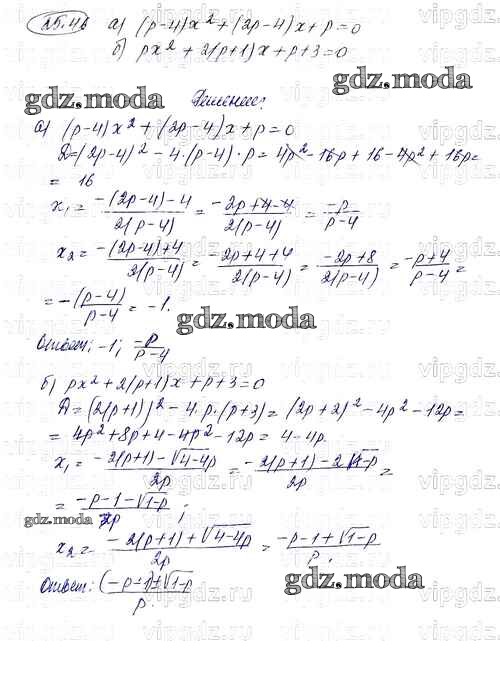 25.46 а) (p-4)x² + (2p-4)x + p = 0
б) px² + 2(p+1)x + p+3 = 0
gdz.moda Решение:
а) (p-4)x² + (2p-4)x + p = 0
D = (2p-4)² - 4·(p-4)·p = 4p² - 16p + 16 - 4p² + 16p =
= 16
x₁ = -(2p-4)-4 / 2(p-4) = -2p+4-4 / 2(p-4) = -p / p-4
x₂ = -(2p-4)+4 / 2(p-4) = -2p+4+4 / 2(p-4) = -2p+8 / 2(p-4) = -p+4 / p-4 =
= -(p-4) / p-4 = -1.
gdz.moda
Ответ: -1; -p / p-4
б) px² + 2(p+1)x + p+3 = 0
D = (2(p+1))² - 4·p·(p+3) = (2p+2)² - 4p² - 12p =
= 4p² + 8p + 4 - 4p² - 12p = 4 - 4p.
x₁ = -2(p+1) - √4-4p / 2p = -2(p+1) - 2√1-p / 2p =
= -p-1-√1-p / p ;
gdz.moda
x₂ = -2(p+1) + √4-4p / 2p = -p-1+√1-p / p.
Ответ: (-p-1)±√1-p / p.
gdz.moda